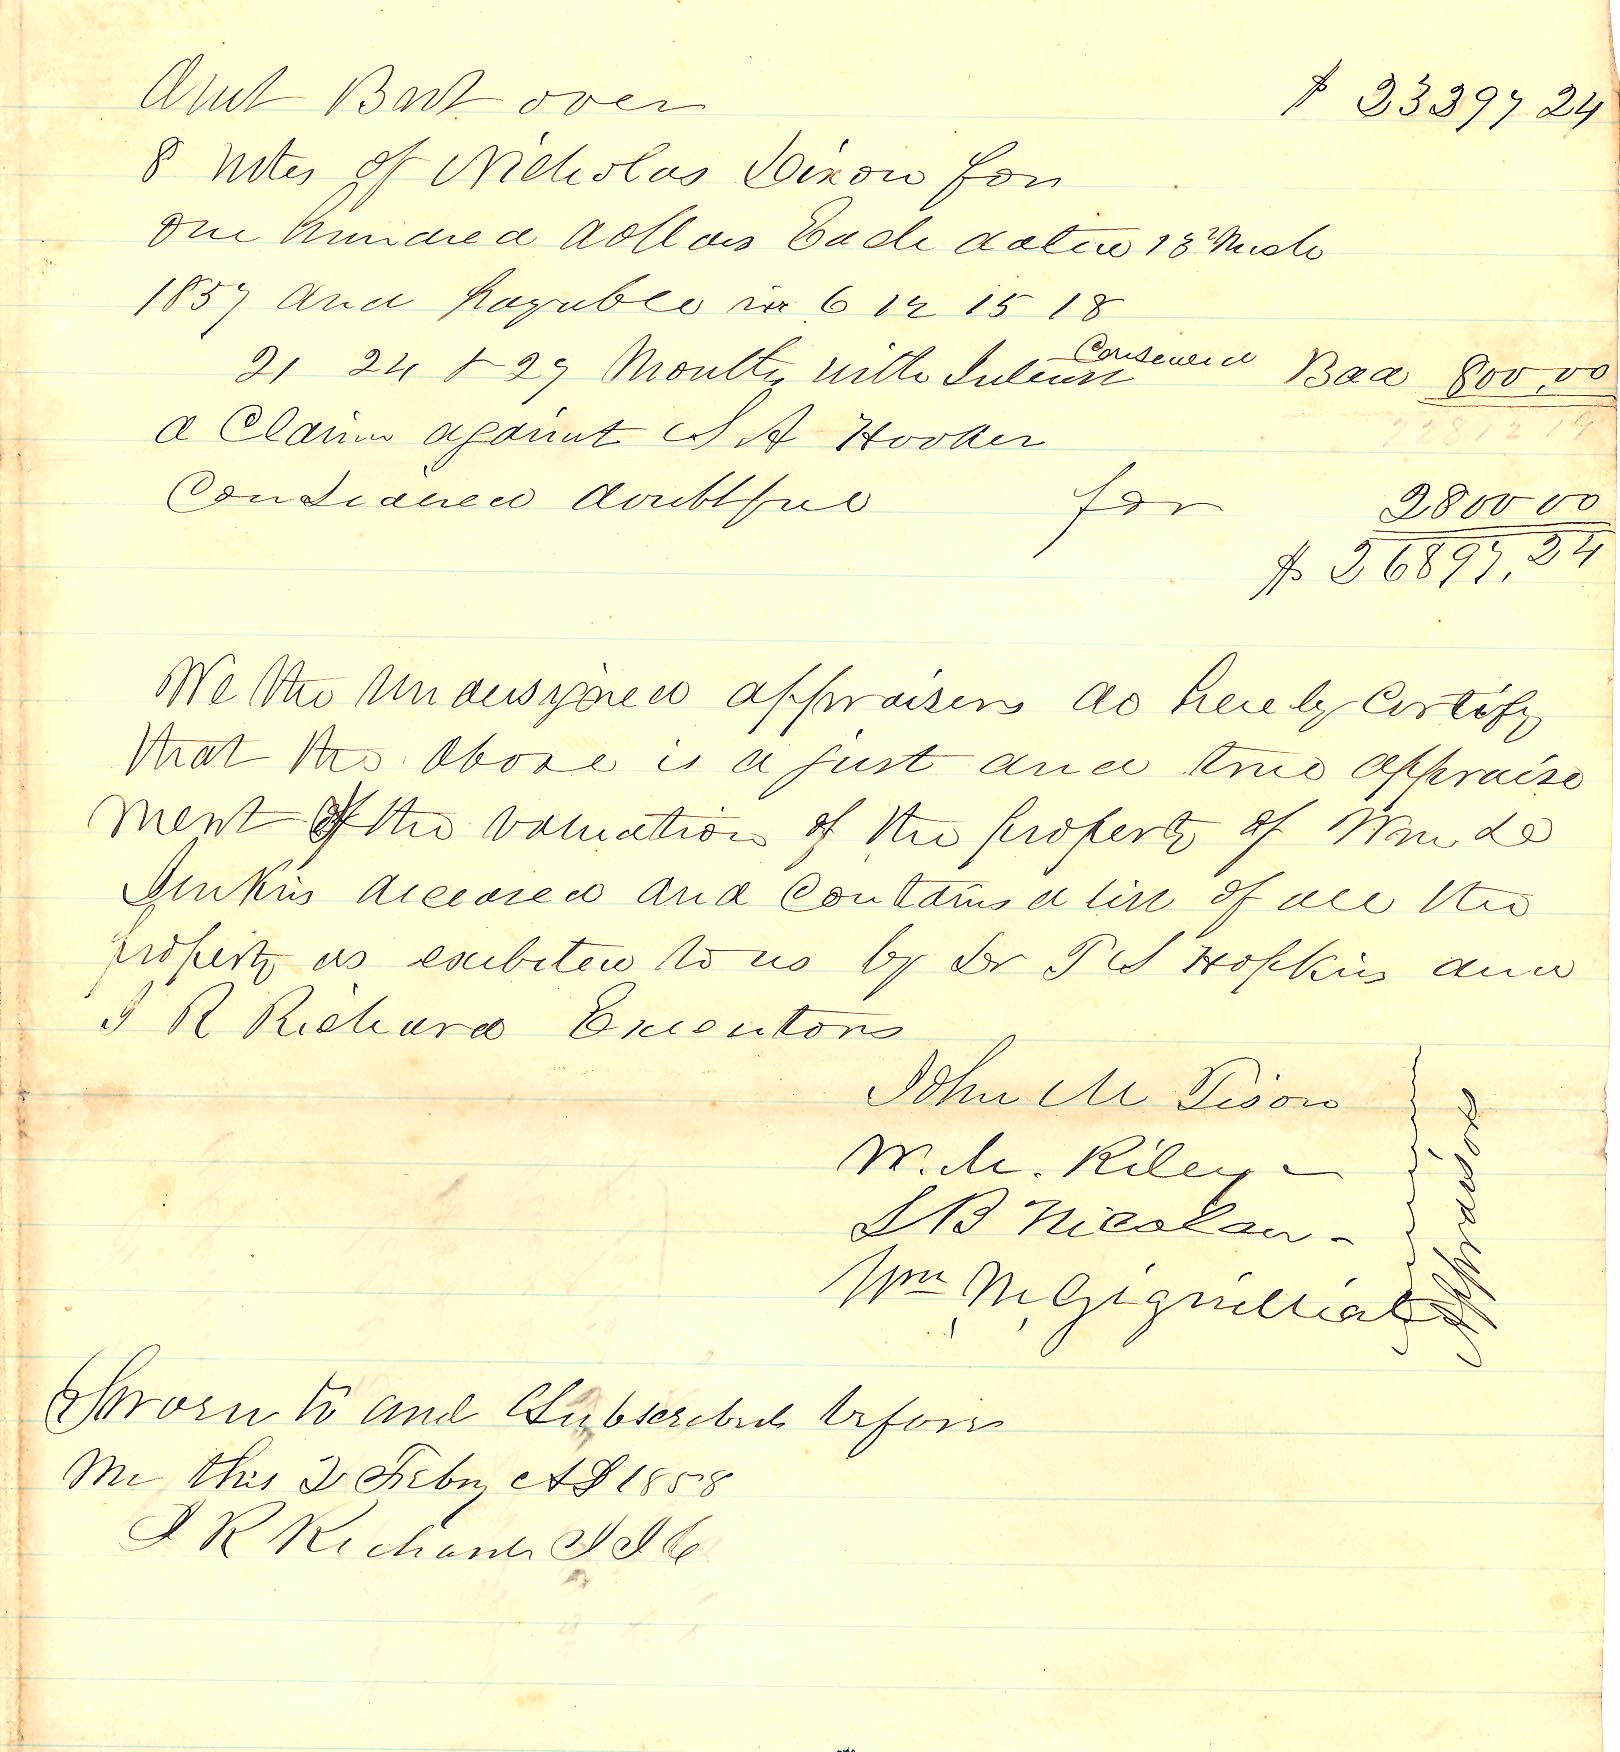 Amt Brt over $ 23297 24
8 notes of Nicholas Dixon for
one hundred dollars Each dated 13 March
1857 and payable in 6 12 15 18
21 24 & 27 Months with Interest Considered Bad 800.00
a Claim against S A Hooker
Considered doubtful for 2800 00
$ 26897.24
We the undersigned appraisers do hereby Certify
that the above is a just and true appraise
ment of the valuation of the property of Wm Le
Jenkins deceased and contains a list of all the
property as exibited to us by Dr T S Hopkins and
J R Richard Executors
John M Tison
W. M. Riley
L B Nicolau
Wm M, Gignilliat
Appraisors
Sworn to and Subscribed before
me this 2 Feby AD 1858
J R Richards J I C